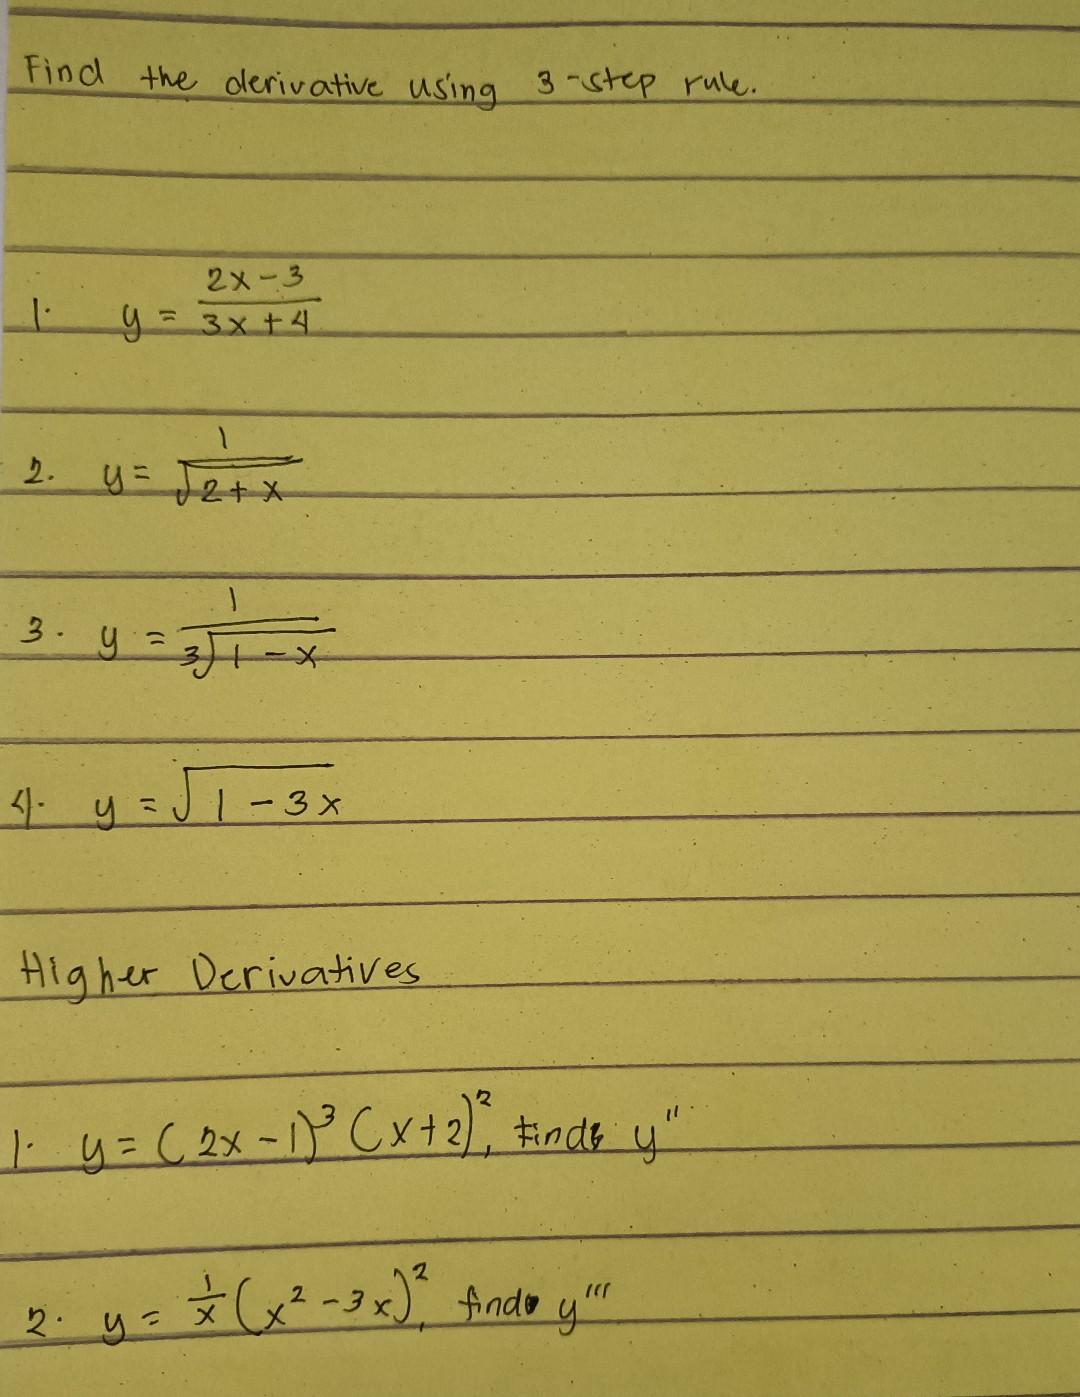 Find the derivative using 3-step rule.
1. y = (2x - 3)/(3x + 4)
2. y = 1/√(2 + x)
3. y = 1/∛(1 - x)
4. y = √(1 - 3x)
Higher Derivatives
1. y = (2x - 1)³ (x + 2)², find y''
2. y = 1/x (x² - 3x)², find y'''